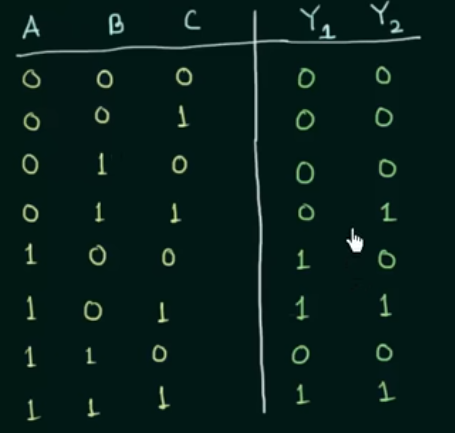 A B C Y₁ Y₂
0 0 0 0 0
0 0 1 0 0
0 1 0 0 0
0 1 1 0 1
1 0 0 1 0
1 0 1 1 1
1 1 0 0 0
1 1 1 1 1